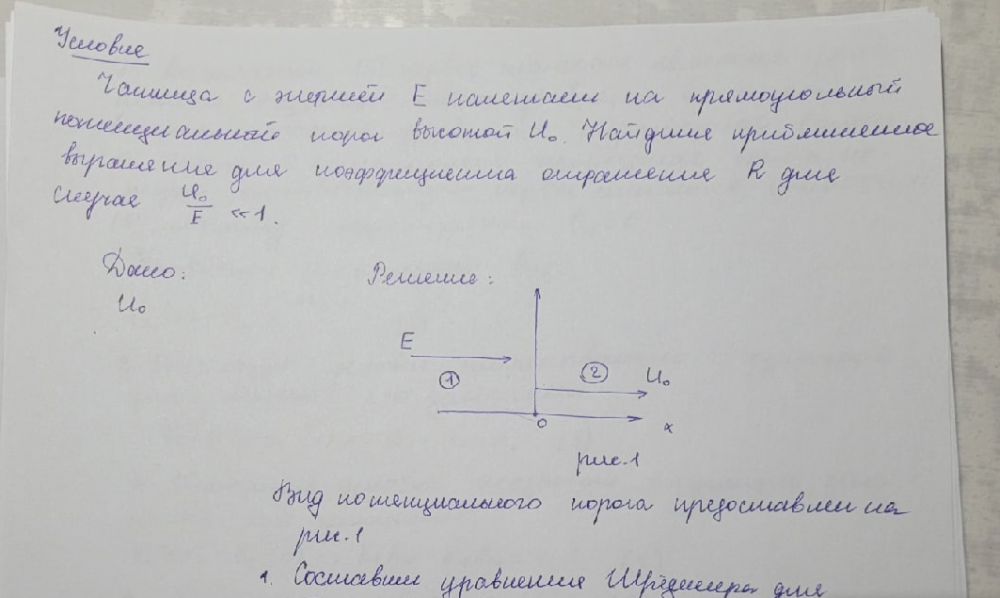 Условие
Частица с энергией E налетает на прямоугольный
потенциальный порог высотой U₀. Найдите приближенное
выражение для коэффициента отражения R для
случая U₀/E ≪ 1.
Дано:
U₀
Решение:
E
1
2
U₀
0
x
рис.1
Вид потенциального порога предоставлен на
рис.1
1. Составим уравнение Шрёдингера для